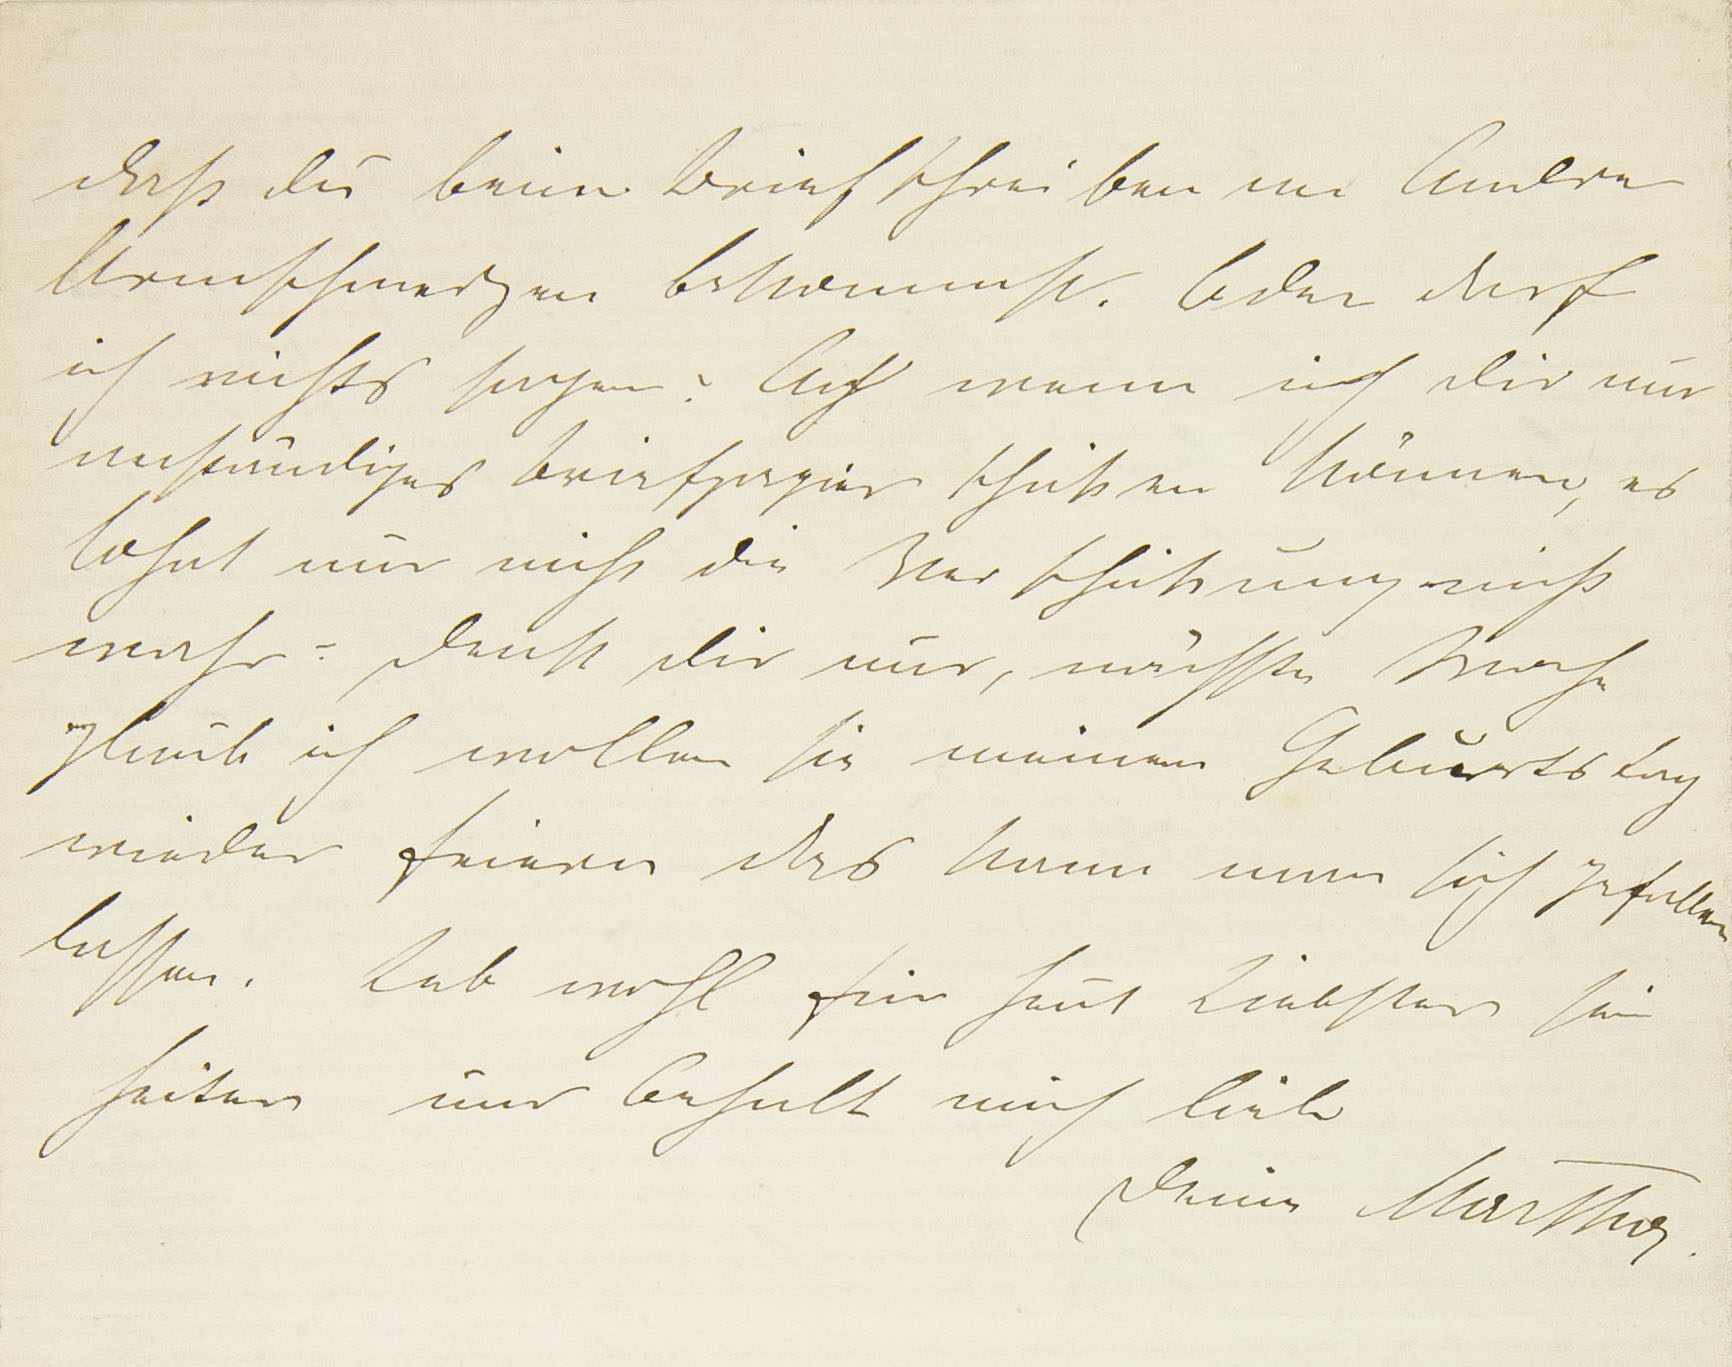 daß du beim Briefschreiben an Andre
Armschmerzen bekommst. Oder darf
ich nichts sagen? Ach wenn ich dir nur
anständiges Briefpapier schicken können, es
lohnt nur nicht die Verschickung nicht
wahr? Denk dir nur, nächste Woche
glaub ich wollen sie meinen Geburtstag
wieder feiern das kann man sich gefallen
lassen. Leb wohl für heut Liebster sei
heiter und behalt mich lieb
Deine Martha.